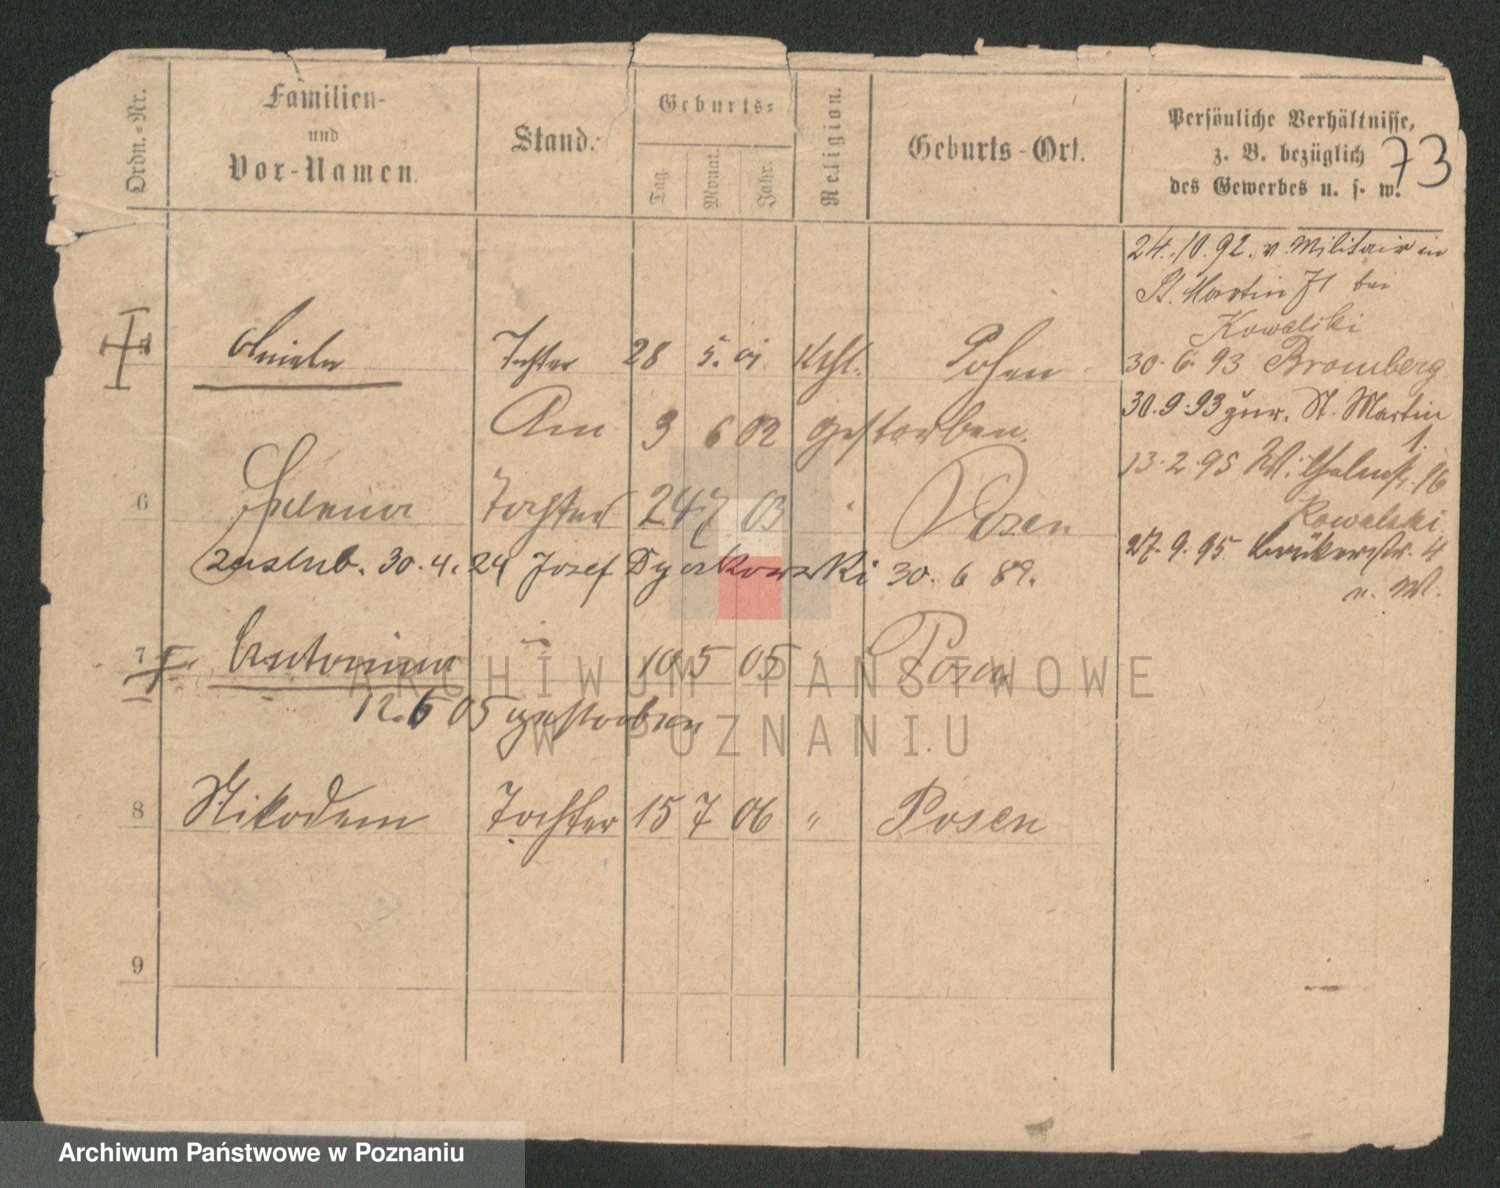 Ordn.-Nr.
Familien-
und
Vor-Namen.
Stand.
Geburts-
Tag.
Monat.
Jahr.
Religion.
Geburts-Ort.
Persönliche Verhältnisse,
z. B. bezüglich
des Gewerbes u. s. w.
73
24.10.92. v. Militair in
St. Martin 71 bei
Kowalski
30.6.93 Bromberg
30.9.93 zur. St. Martin
1.
13.2.95 Wilhelmstr. 16
Kowalski
27.9.95 4
n. W.
Aniela Tochter 28 5. 01 Kthl. Posen
Am 3 6 02 gestorben.
6 Helena Tochter 24 7 03 " Posen
zaslub. 30.4.24 Jozef Dyczkowski 30. 6 89.
7 Antonina " 10 5 05 " Posen
12.6 05 gestorben
8 Nikodem Tochter 15 7 06 " Posen
9
ARCHIWUM PAŃSTWOWE
W POZNANIU
Archiwum Państwowe w Poznaniu